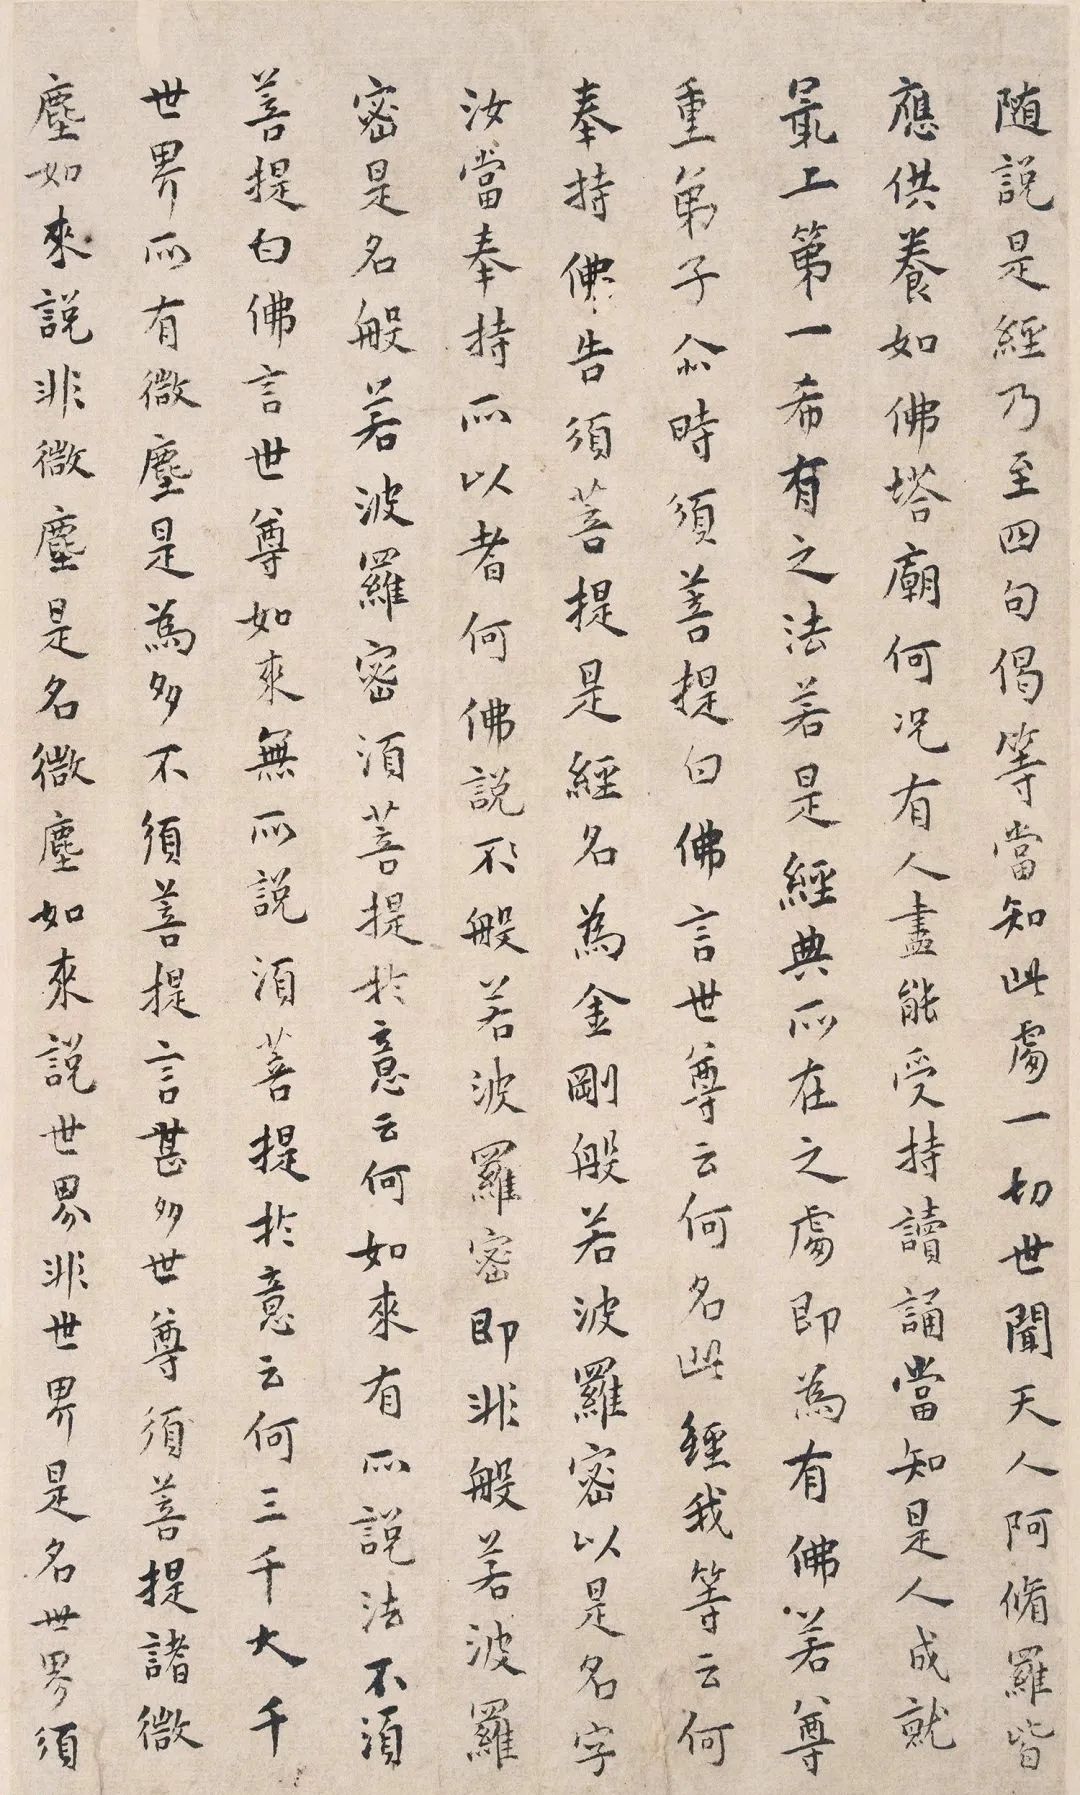 随說是經乃至四句偈等當知此處一切世間天人阿脩羅皆
應供養如佛塔廟何況有人盡能受持讀誦當知是人成就
最上第一希有之法若是經典所在之處即為有佛若尊
重弟子尒時須菩提白佛言世尊云何名此經我等云何
奉持佛告須菩提是經名為金剛般若波羅密以是名字
汝當奉持所以者何佛說不般若波羅密即非般若波羅
密是名般若波羅密須菩提於意云何如來有所說法不須
菩提白佛言世尊如來無所說須菩提於意云何三千大千
世界所有微塵是為多不須菩提言甚多世尊須菩提諸微
塵如來說非微塵是名微塵如來說世界非世界是名世界須